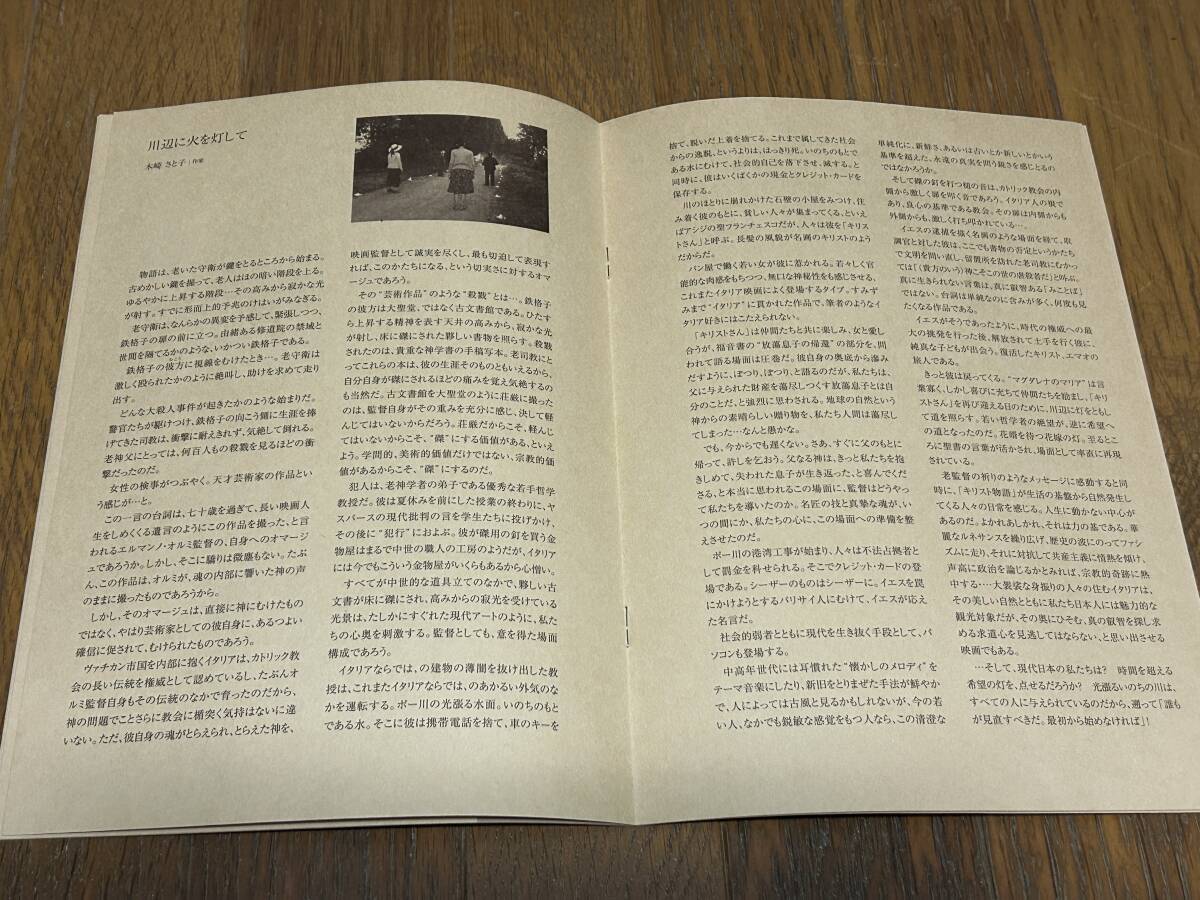 川辺に火を灯して
木崎 さと子|作家
物語は、老いた守衛が鍵をとるところから始まる。
古めかしい鍵を握って、老人はほの暗い階段を上る。
ゆるやかに上昇する階段…その高みから寂かな光
が射す。すでに形而上的予兆のけはいがみなぎる。
老守衛は、なんらかの異変を予感して、緊張しつつ、
鉄格子の扉の前に立つ。由緒ある修道院の禁域と
世間を隔てるかのような、いかつい鉄格子である。
鉄格子の彼方に視線をむけたとき…。老守衛は
激しく殴られたかのように絶叫し、助けを求めて走り
出す。
どんな大殺人事件が起きたかのような始まりだ。
警官たちが駆けつけ、鉄格子の向こう側に生涯を捧
げてきた司教は、衝撃に耐えきれず、気絶して倒れる。
老神父にとっては、何百人もの殺戮を見るほどの衝
撃だったのだ。
女性の検事がつぶやく。天才芸術家の作品とい
う感じが…と。
この一言の台詞は、七十歳を過ぎて、長い映画人
生をしめくくる遺言のようにこの作品を撮った、と言
われるエルマンノ・オルミ監督の、自身へのオマージ
ュであろうか。しかし、そこに驕りは微塵もない。たぶ
ん、この作品は、オルミが、魂の内部に響いた神の声
のままに撮ったものであろうから。
しかし、そのオマージュは、直接に神にむけたもの
ではなく、やはり芸術家としての彼自身に、あるつよい
確信に促されて、むけられたものであろう。
ヴァチカン市国を内部に抱くイタリアは、カトリック教
会の長い伝統を権威として認めているし、たぶんオ
ルミ監督自身もその伝統のなかで育ったのだから、
神の問題でことさらに教会に楯突く気持はないに違
いない。ただ、彼自身の魂がとらえられ、とらえた神を、
映画監督として誠実を尽くし、最も切迫して表現す
れば、このかたちになる、という切実さに対するオマ
ージュであろう。
その“芸術作品”のような“殺戮”とは…。鉄格子
の彼方は大聖堂、ではなく古文書館である。ひたす
ら上昇する精神を表す天井の高みから、寂かな光
が射し、床に磔にされた夥しい書物を照らす。殺戮
されたのは、貴重な神学書の手稿写本。老司教にと
ってこれらの本は、彼の生涯そのものともいえるから、
自分自身が磔にされるほどの痛みを覚え気絶するの
も当然だ。古文書館を大聖堂のように荘厳に撮った
のは、監督自身がその重みを充分に感じ、決して軽
んじてはいないからだろう。荘厳だからこそ、軽んじ
てはいないからこそ、“磔”にする価値がある、といえ
よう。学問的、美術的価値だけではない、宗教的価
値があるからこそ、“磔”にするのだ。
犯人は、老神学者の弟子である優秀な若手哲学
教授だ。彼は夏休みを前にした授業の終わりに、ヤ
スパースの現代批判の言を学生たちに投げかけ、
その後に“犯行”におよぶ。彼が磔用の釘を買う金
物屋はまるで中世の職人の工房のようだが、イタリア
には今でもこういう金物屋がいくらもあるから心憎い。
すべてが中世的な道具立てのなかで、夥しい古
文書が床に磔にされ、高みからの寂光を受けている
光景は、たしかにすぐれた現代アートのように、私た
ちの心奥を刺激する。監督としても、意を得た場面
構成であろう。
イタリアならでは、の建物の薄闇を抜け出した教
授は、これまたイタリアならでは、のあかるい外気のな
かを運転する。ポー川の光漲る水面。いのちのもと
である水。そこに彼は携帯電話を捨て、車のキーを
捨て、脱いだ上着を捨てる。これまで属してきた社会
からの逸脱、というよりは、はっきり死。いのちのもとで
ある水にむけて、社会的自己を落下させ、滅する。と
同時に、彼はいくばくかの現金とクレジット・カードを
保存する。
川のほとりに崩れかけた石壁の小屋をみつけ、住
み着く彼のもとに、貧しい人々が集まってくる、といえ
ばアシジの聖フランチェスコだが、人々は彼を「キリス
トさん」と呼ぶ。長髪の風貌が名画のキリストのよう
だからだ。
パン屋で働く若い女が彼に惹かれる。若々しく官
能的な肉感をもちつつ、無口な神秘性をも感じさせる、
これまたイタリア映画によく登場するタイプ。すみず
みまで“イタリア”に貫かれた作品で、筆者のようなイ
タリア好きにはこたえられない。
「キリストさん」は仲間たちと共に楽しみ、女と愛し
合うが、福音書の“放蕩息子の帰還”の部分を、問
われて語る場面は圧巻だ。彼自身の奥底から滲み
だすように、ぽつり、ぽつり、と語るのだが、私たちは、
父に与えられた財産を蕩尽しつくす放蕩息子とは自
分のことだ、と強烈に思わされる。地球の自然という
神からの素晴らしい贈り物を、私たち人間は蕩尽し
てしまった…なんと愚かな。
でも、今からでも遅くない。さあ、すぐに父のもとに
帰って、許しを乞おう。父なる神は、きっと私たちを抱
きしめて、失われた息子が生き返った、と喜んでくだ
さる、と本当に思われるこの場面に、監督はどうやっ
て私たちを導いたのか。名匠の技と真摯な魂が、い
つの間にか、私たちの心に、この場面への準備を整
えさせたのだ。
ポー川の港湾工事が始まり、人々は不法占拠者と
して罰金を科せられる。そこでクレジット・カードの登
場である。シーザーのものはシーザーに。イエスを罠
にかけようとするパリサイ人にむけて、イエスが応え
た名言だ。
社会的弱者とともに現代を生き抜く手段として、パ
ソコンも登場する。
中高年世代には耳慣れた“懐かしのメロディ”を
テーマ音楽にしたり、新旧をとりまぜた手法が鮮やか
で、人によっては古風と見るかもしれないが、今の若
い人、なかでも鋭敏な感覚をもつ人なら、この清澄な
単純化に、新鮮さ、あるいは古いとか新しいとかいう
基準を超えた、永遠の真実を問う鋭さを感じとるの
ではなかろうか。
そして磔の釘を打つ槌の音は、カトリック教会の内
側から激しく扉を叩く音であろう。イタリア人の根で
あり、良心の基準である教会。その扉は内側からも
外側からも、激しく打ち叩かれている…。
イエスの逮捕を描く名画のような場面を経て、取
調官と対した彼は、ここでも書物の否定というかたち
で文明を問い直し、留置所を訪れた老司教にむかっ
ては「(貴方のいう)神こそこの世の虐殺者だ」と呼ぶ。
真に生きられない言葉は、真に叡智ある「みことば」
ではない。台詞は単純なのに含みが多く、何度も見
たくなる作品である。
イエスがそうであったように、時代の権威への最
大の挑発を行った後、解放されて土手を行く彼に、
純真な子どもが出会う。復活したキリスト、エマオの
旅人である。
きっと彼は戻ってくる。“マグダレナのマリア”は言
葉寡く、しかし喜びに充ちて仲間たちを励まし、「キリ
ストさん」を再び迎える日のために、川辺に灯をともし
て道を照らす。若い哲学者の絶望が、逆に希望へ
の道となったのだ。花婿を待つ花嫁の灯。至るとこ
ろに聖書の言葉が活かされ、場面として率直に再現
されている。
老監督の祈りのようなメッセージに感動すると同
時に、「キリスト物語」が生活の基盤から自然発生し
てくる人々の日常を感じる。人生に動かない中心が
あるのだ。よかれあしかれ、それは力の基である。華
麗なルネサンスを繰り広げ、歴史の波にのってファシ
ズムに走り、それに対抗して共産主義に情熱を傾け、
声高に政治を論じるかとみれば、宗教的奇跡に熱
中する…。大袈裟な身振りの人々の住むイタリアは、
その美しい自然とともに私たち日本人には魅力的な
観光対象だが、その奥にひそむ、真の叡智を探し求
める求道心を見逃してはならない、と思い出させる
映画でもある。
…そして、現代日本の私たちは? 時間を超える
希望の灯を、点せるだろうか? 光漲るいのちの川は、
すべての人に与えられているのだから、遡って「誰も
が見直すべきだ。最初から始めなければ」!